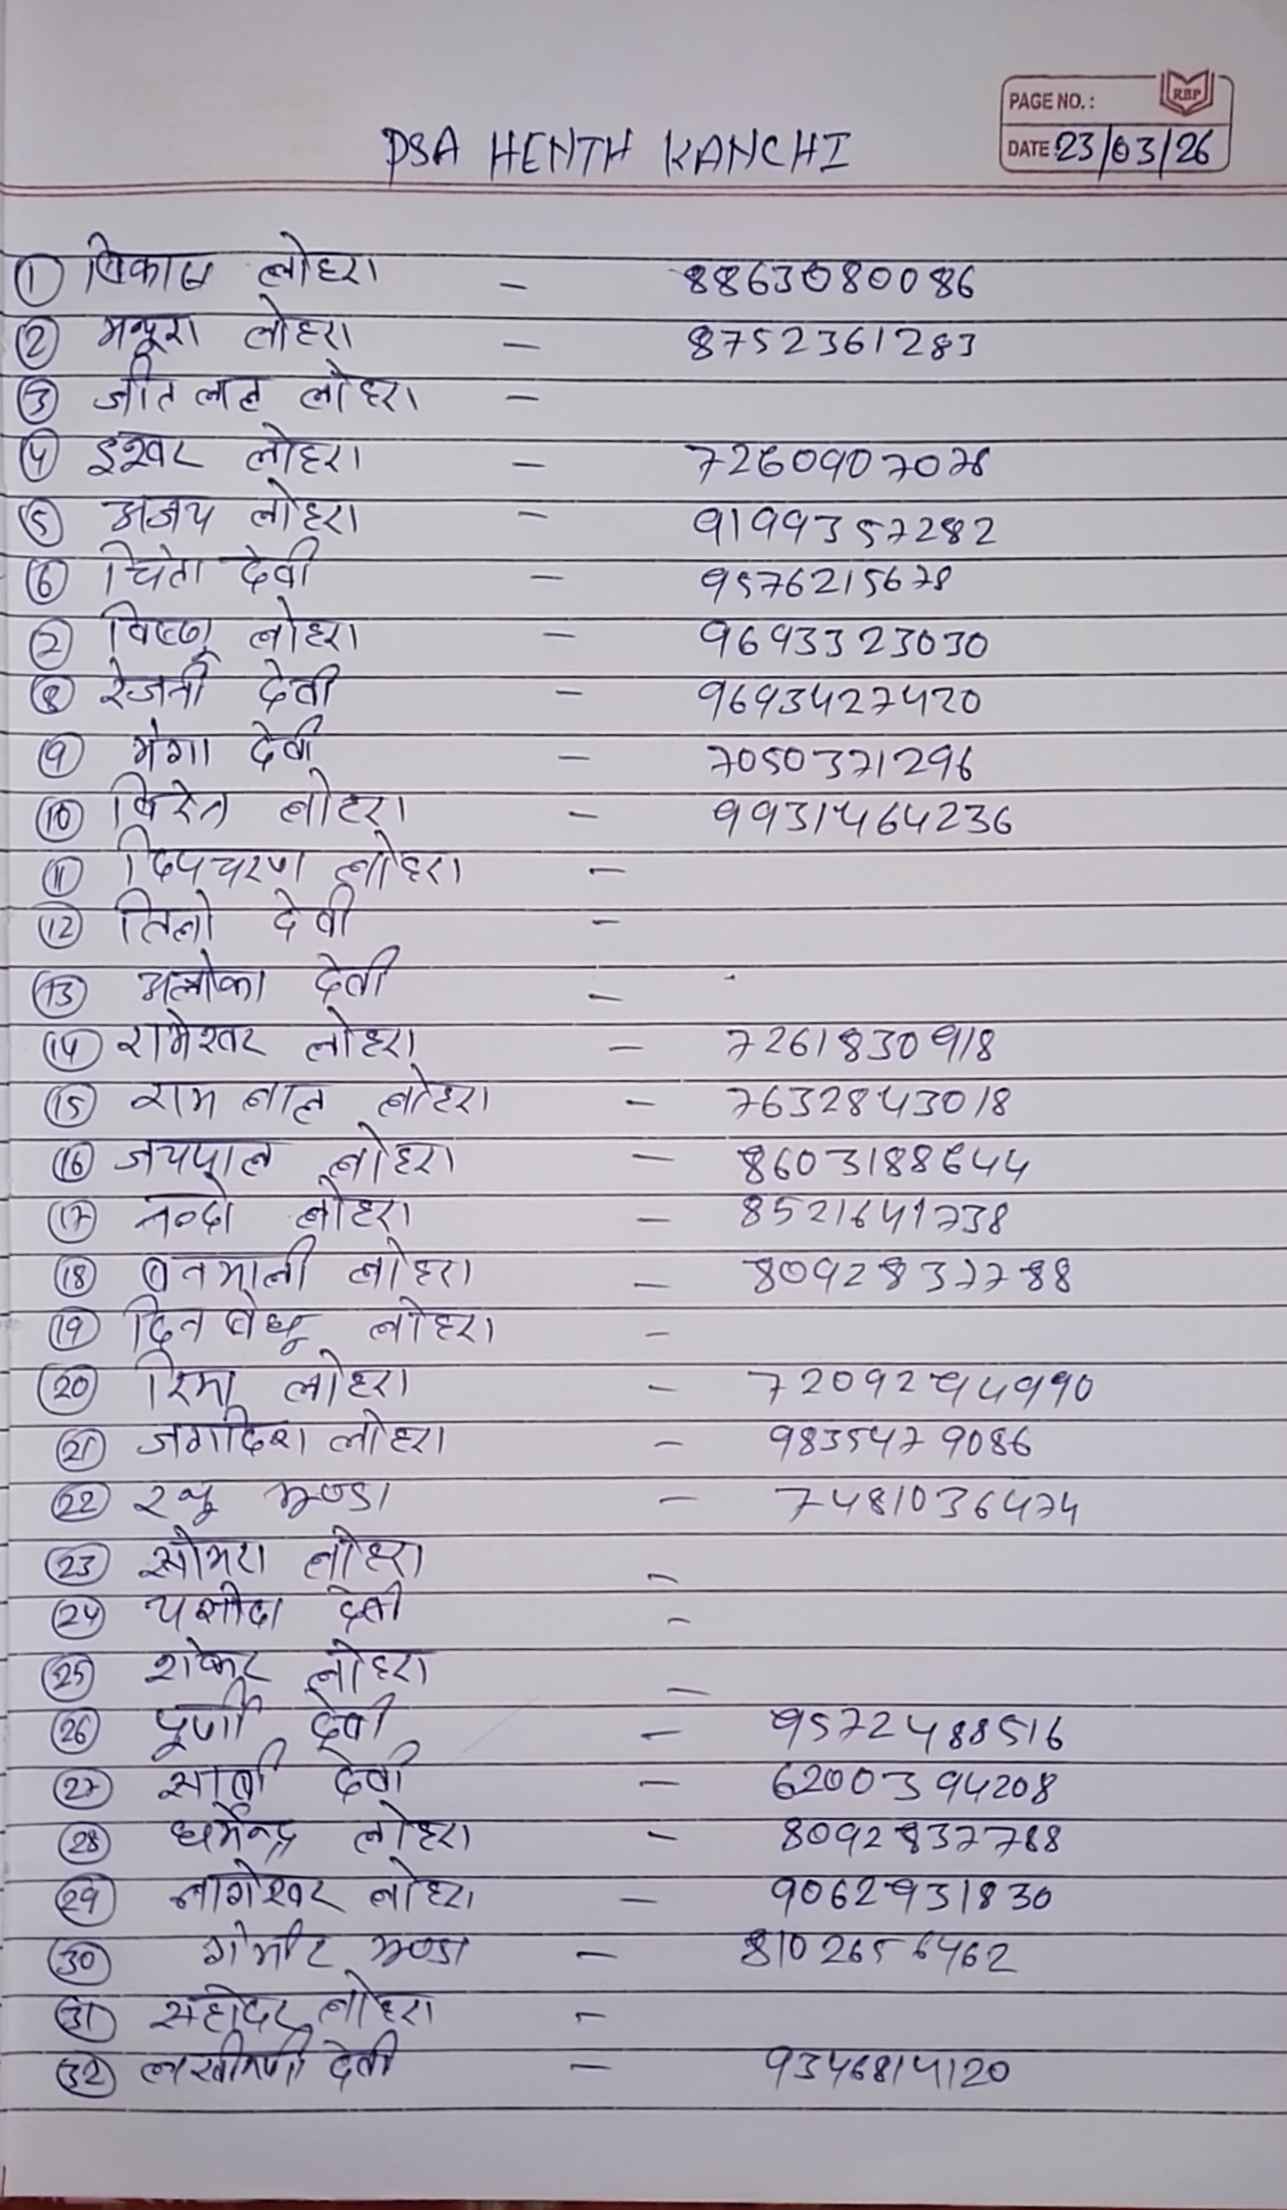 PAGE NO.:
RBP
DATE 23/03/26
PSA HENTH KANCHI
① विकाश लोहरा - 8863080086
② मथुरा लोहरा - 8752361283
③ जीत लाल लोहरा -
④ इश्वर लोहरा - 7260907078
⑤ अजय लोहरा - 9199357282
⑥ चिंता देवी - 9576215678
⑦ विष्णु लोहरा - 9693323030
⑧ रेजनी देवी - 9693427420
⑨ मंगा देवी - 7050371296
⑩ विरेन लोहरा - 9931464236
⑪ दिपचरण लोहरा -
⑫ तिलो देवी -
⑬ अलोका देवी -
⑭ रामेश्वर लोहरा - 7261830918
⑮ राम लाल लोहरा - 7632843018
⑯ जयपाल लोहरा - 8603188644
⑰ नन्दो लोहरा - 8521641738
⑱ वनमाली लोहरा - 8092837788
⑲ दिन बंधू लोहरा -
⑳ लोहरा - 7209294990
㉑ जगदिश लोहरा - 9835479086
㉒ मुण्डा - 7481036474
㉓ सोमरा लोहरा -
㉔ यशोदा देवी -
㉕ शंकर लोहरा -
㉖ पूर्णी देवी - 9572488516
㉗ देवी - 6200394208
㉘ धर्मेन्द्र लोहरा - 8092837788
㉙ नागेश्वर लोहरा - 9062931830
㉚ मुण्डा - 8102656462
㉛ सहोदर लोहरा -
㉜ लखीमणी देवी - 9346814120